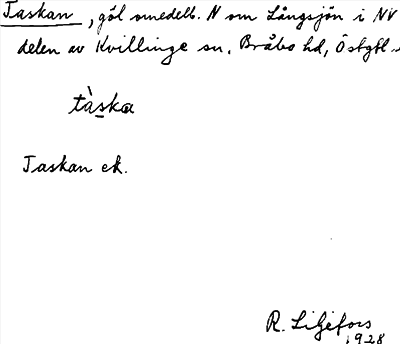 Taskan, göl omedelb. N om Långsjön i NV
delen av Kvillinge sn, Bråbo hd, Östgtl.
tàska
Taskan ek.
R. Liljefors
1928